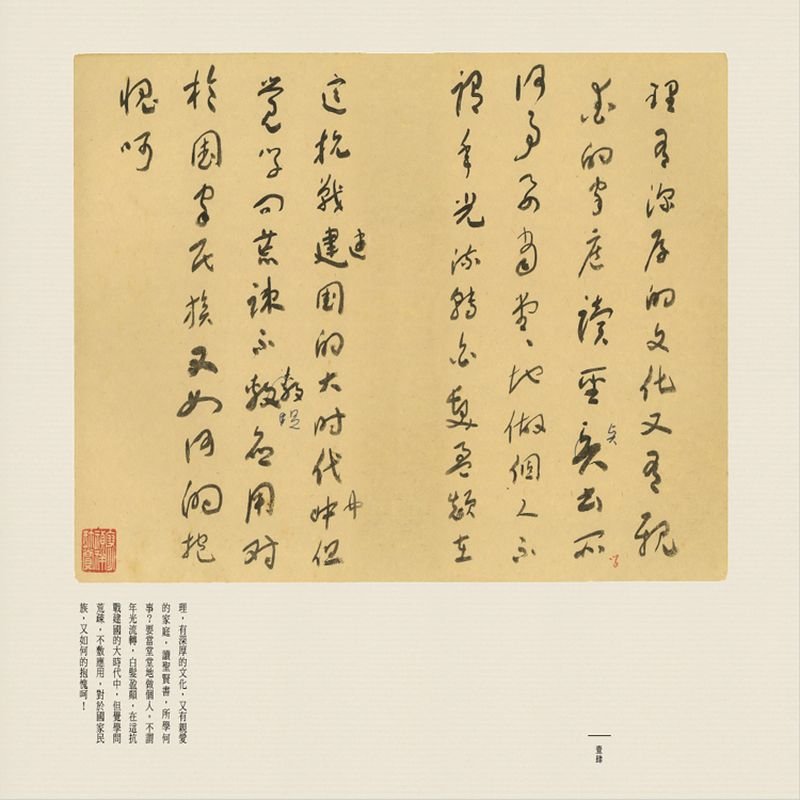 理有深厚的文化又有親
愛的家庭讀聖賢書所
学
何事要當堂、地做個人不
謂年光流轉白髮盈顛在
這抗戰建国的大时代中但
建
中
覺学问荒疎不敷应用对
敷
於国家民族又如何的抱
愧呵
理，有深厚的文化，又有親愛
的家庭，讀聖賢書，所學何
事？要當堂堂地做個人，不謂
年光流轉，白髮盈顛，在這抗
戰建國的大時代中，但覺學問
荒疎，不敷應用，對於國家民
族，又如何的抱愧呵！
壹肆